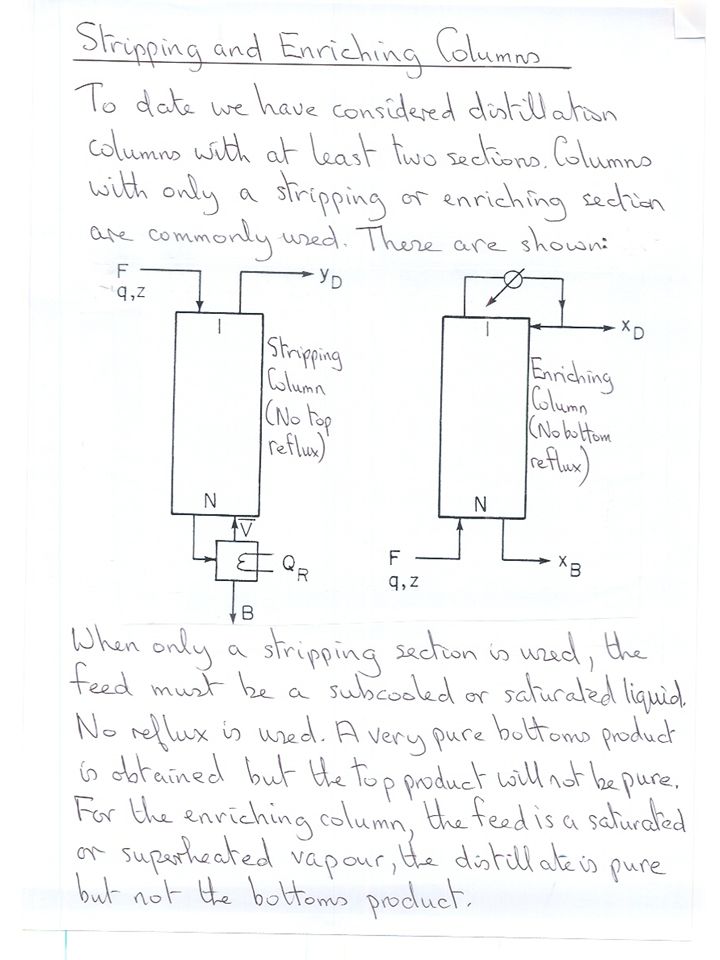 Stripping and Enriching Columns
To date we have considered distillation
columns with at least two sections. Columns
with only a stripping or enriching section
are commonly used. These are shown:
F
q,z
yD
1
Stripping
Column
(No top
reflux)
N
V̅
QR
B
xD
1
Enriching
Column
(No bottom
reflux)
N
F
q,z
xB
When only a stripping section is used, the
feed must be a subcooled or saturated liquid.
No reflux is used. A very pure bottoms product
is obtained but the top product will not be pure.
For the enriching column, the feed is a saturated
or superheated vapour, the distillate is pure
but not the bottoms product.